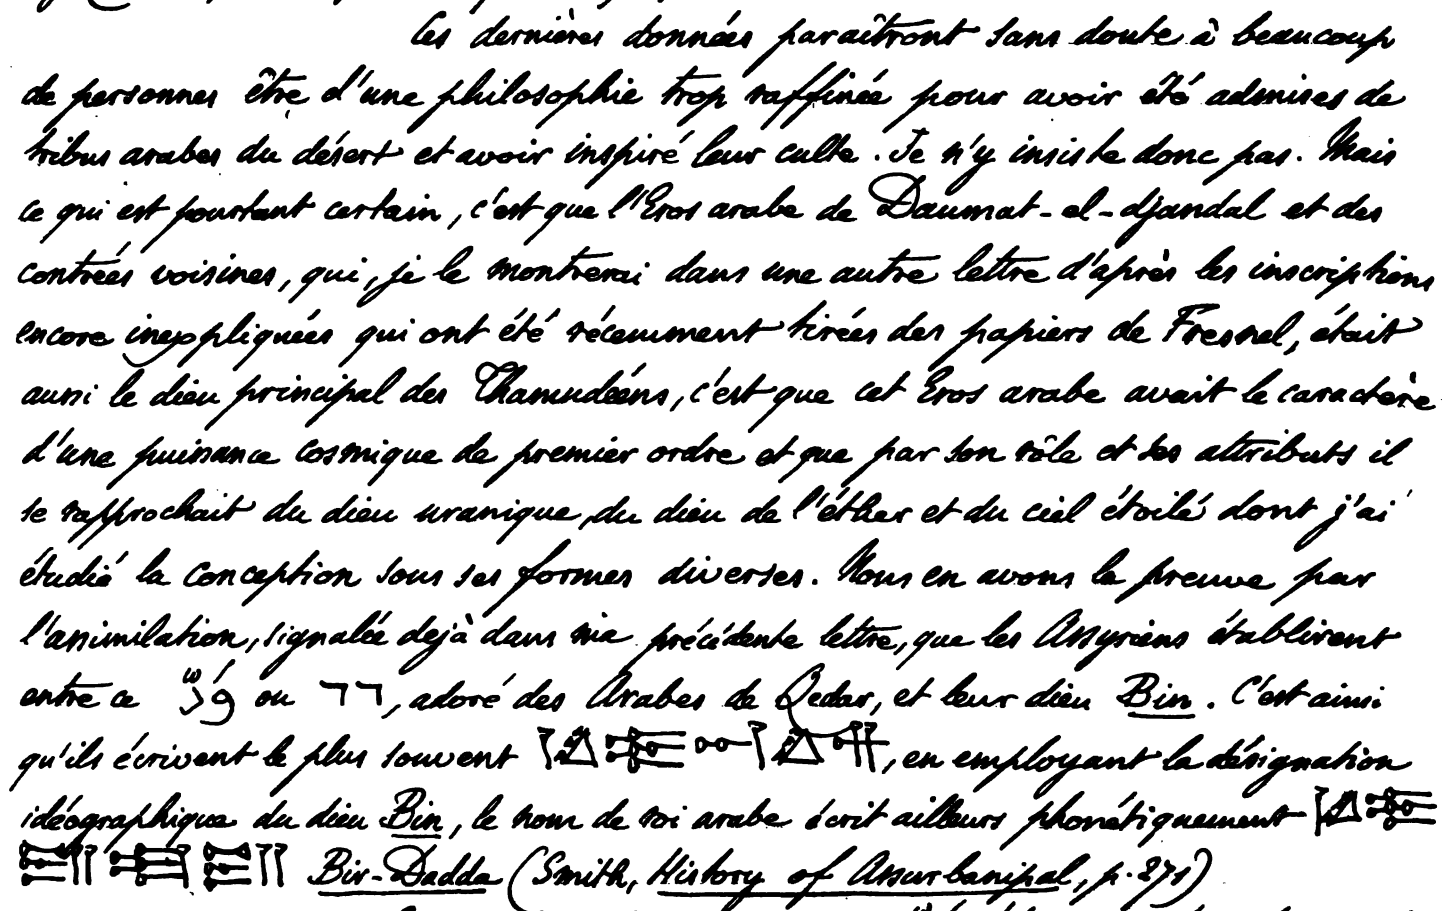 Ces dernières données paraîtront sans doute à beaucoup
de personnes être d'une philosophie trop raffinée pour avoir été admises de
tribus arabes du désert et avoir inspiré leur culte. Je n'y insiste donc pas. Mais
ce qui est pourtant certain, c'est que l'Eros arabe de Daumat-el-djandal et des
contrées voisines, qui, je le montrerai dans une autre lettre d'après les inscriptions
encore inexpliquées qui ont été récemment tirées des papiers de Fresnel, était
aussi le dieu principal des Thamudéens, c'est que cet Eros arabe avait le caractère
d'une puissance cosmique de premier ordre et que par son rôle et ses attributs il
se rapprochait du dieu uranique, du dieu de l'éther et du ciel étoilé dont j'ai
étudié la conception sous ses formes diverses. Nous en avons la preuve par
l'assimilation, signalée dejà dans ma précédente lettre, que les Assyriens établirent
entre ce ou דד, adoré des Arabes de Qedar, et leur dieu Bin. C'est ainsi
qu'ils écrivent le plus souvent , en employant la désignation
idéographique du dieu Bin, le nom de roi arabe écrit ailleurs phonétiquement
Bir-Dadda (Smith, History of Assurbanipal, p. 271)